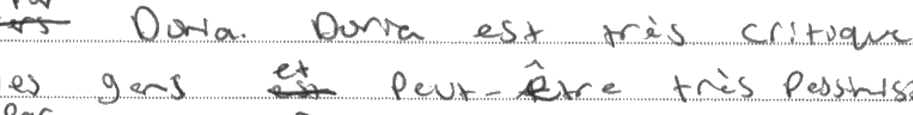 Doria. Doria est très critique
es gens et peut-être très pessimis